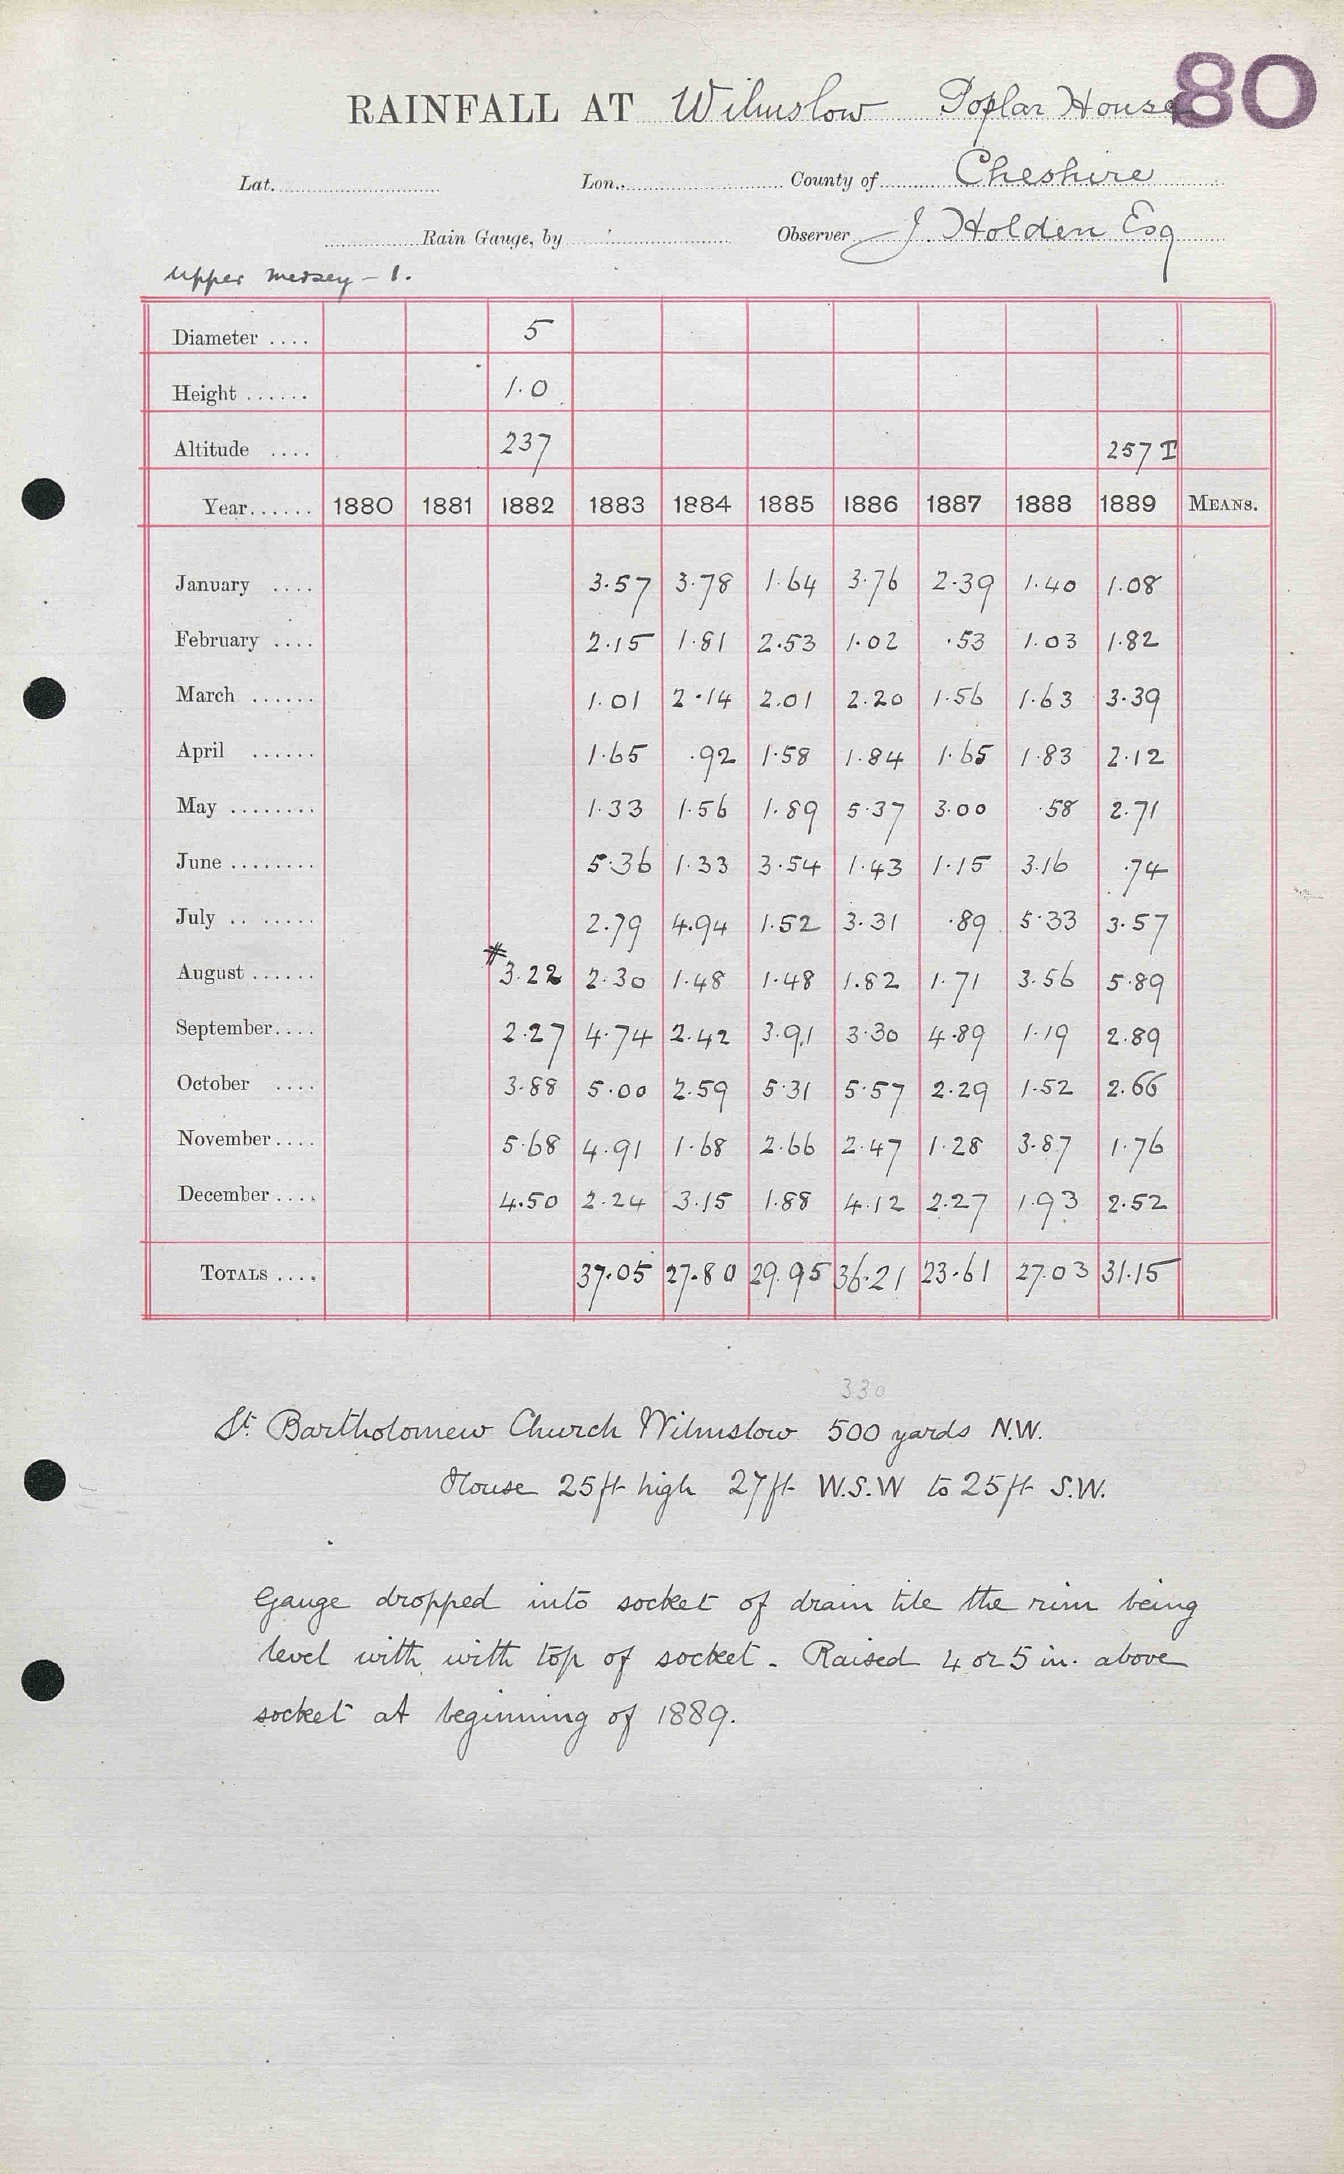 80
RAINFALL AT Wilmslow Poplar House
Lat. Lon. County of Cheshire
Rain Gauge, by Observer J. Holden Esq
Upper Mersey – 1.
Diameter .... 5
Height ...... 1.0
Altitude .... 237 257 T
Year...... 1880 1881 1882 1883 1884 1885 1886 1887 1888 1889 MEANS.
January .... 3.57 3.78 1.64 3.76 2.39 1.40 1.08
February .... 2.15 1.81 2.53 1.02 .53 1.03 1.82
March ...... 1.01 2.14 2.01 2.20 1.56 1.63 3.39
April ...... 1.65 .92 1.58 1.84 1.65 1.83 2.12
May ........ 1.33 1.56 1.89 5.37 3.00 .58 2.71
June ........ 5.36 1.33 3.54 1.43 1.15 3.16 .74
July .. ..... 2.79 4.94 1.52 3.31 .89 5.33 3.57
August ...... # 3.22 2.30 1.48 1.48 1.82 1.71 3.56 5.89
September.... 2.27 4.74 2.42 3.91 3.30 4.89 1.19 2.89
October .... 3.88 5.00 2.59 5.31 5.57 2.29 1.52 2.66
November.... 5.68 4.91 1.68 2.66 2.47 1.28 3.87 1.76
December.... 4.50 2.24 3.15 1.88 4.12 2.27 1.93 2.52
TOTALS .... 37.05 27.80 29.95 36.21 23.61 27.03 31.15
330
St. Bartholomew Church Wilmslow 500 yards N.W.
House 25ft high 27ft W.S.W to 25ft S.W.
Gauge dropped into socket of drain tile the rim being
level with with top of socket. Raised 4 or 5 in. above
socket at beginning of 1889.